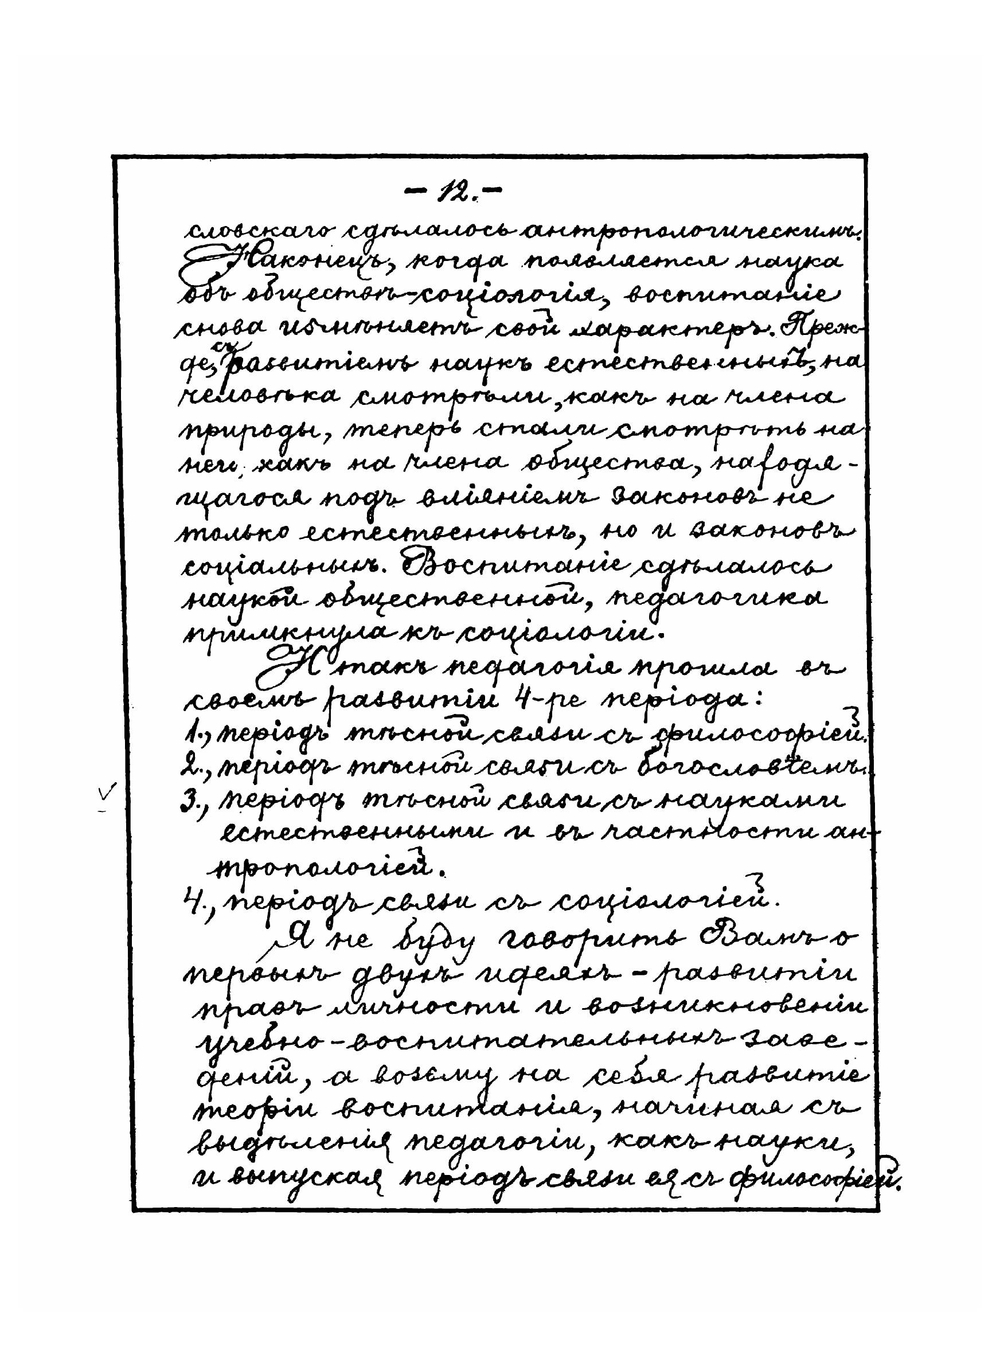 – 12. –
словскаго сдѣлалось антропологическимъ.
Наконецъ, когда появляется наука
объ обществѣ-соціологія, воспитаніе
снова измѣняетъ свой характеръ. Преж-
де, съ развитіемъ наукъ естественныхъ, на
человѣка смотрѣли, какъ на члена
природы, теперь стали смотрѣть на
него, какъ на члена общества, находя-
щагося подъ вліяніемъ законовъ не
только естественныхъ, но и законовъ
соціальныхъ. Воспитаніе сдѣлалось
наукой общественной, педагогика
примкнула къ соціологіи.
Итакъ педагогія прошла въ
своемъ развитіи 4-ре періода:
1., періодъ тѣсной связи съ философіей.
2., періодъ тѣсной связи съ богословіемъ.
3., періодъ тѣсной связи съ науками
естественными и въ частности ан-
тропологіей.
4., періодъ связи съ соціологіей.
Я не буду говорить Вамъ о
первыхъ двухъ идеяхъ – развитіи
правъ личности и возникновеніи
учебно-воспитательныхъ заве-
деній, а возьму на себя развитіе
теоріи воспитанія, начиная съ
выдѣленія педагогіи, какъ науки,
и выпуская періодъ связи ея съ философіей.